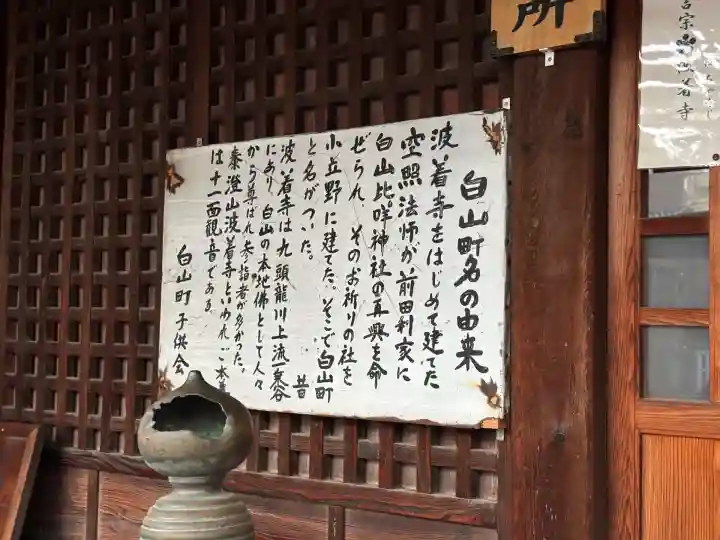 白山町名の由来
波着寺をはじめて建てた
空照法師が前田利家に
白山比咩神社の再興を命
ぜられ、そのお祈りの社を
小立野に建てた。そこで白山町
と名がついた。 昔
波着寺は九頭龍川上流乗谷
にあり 白山の本地佛として人々
から尊ばれ参詣者が多かった。
泰澄山波着寺といわれご本尊
は十一面観音である
白山町子供会
所
言宗
着寺